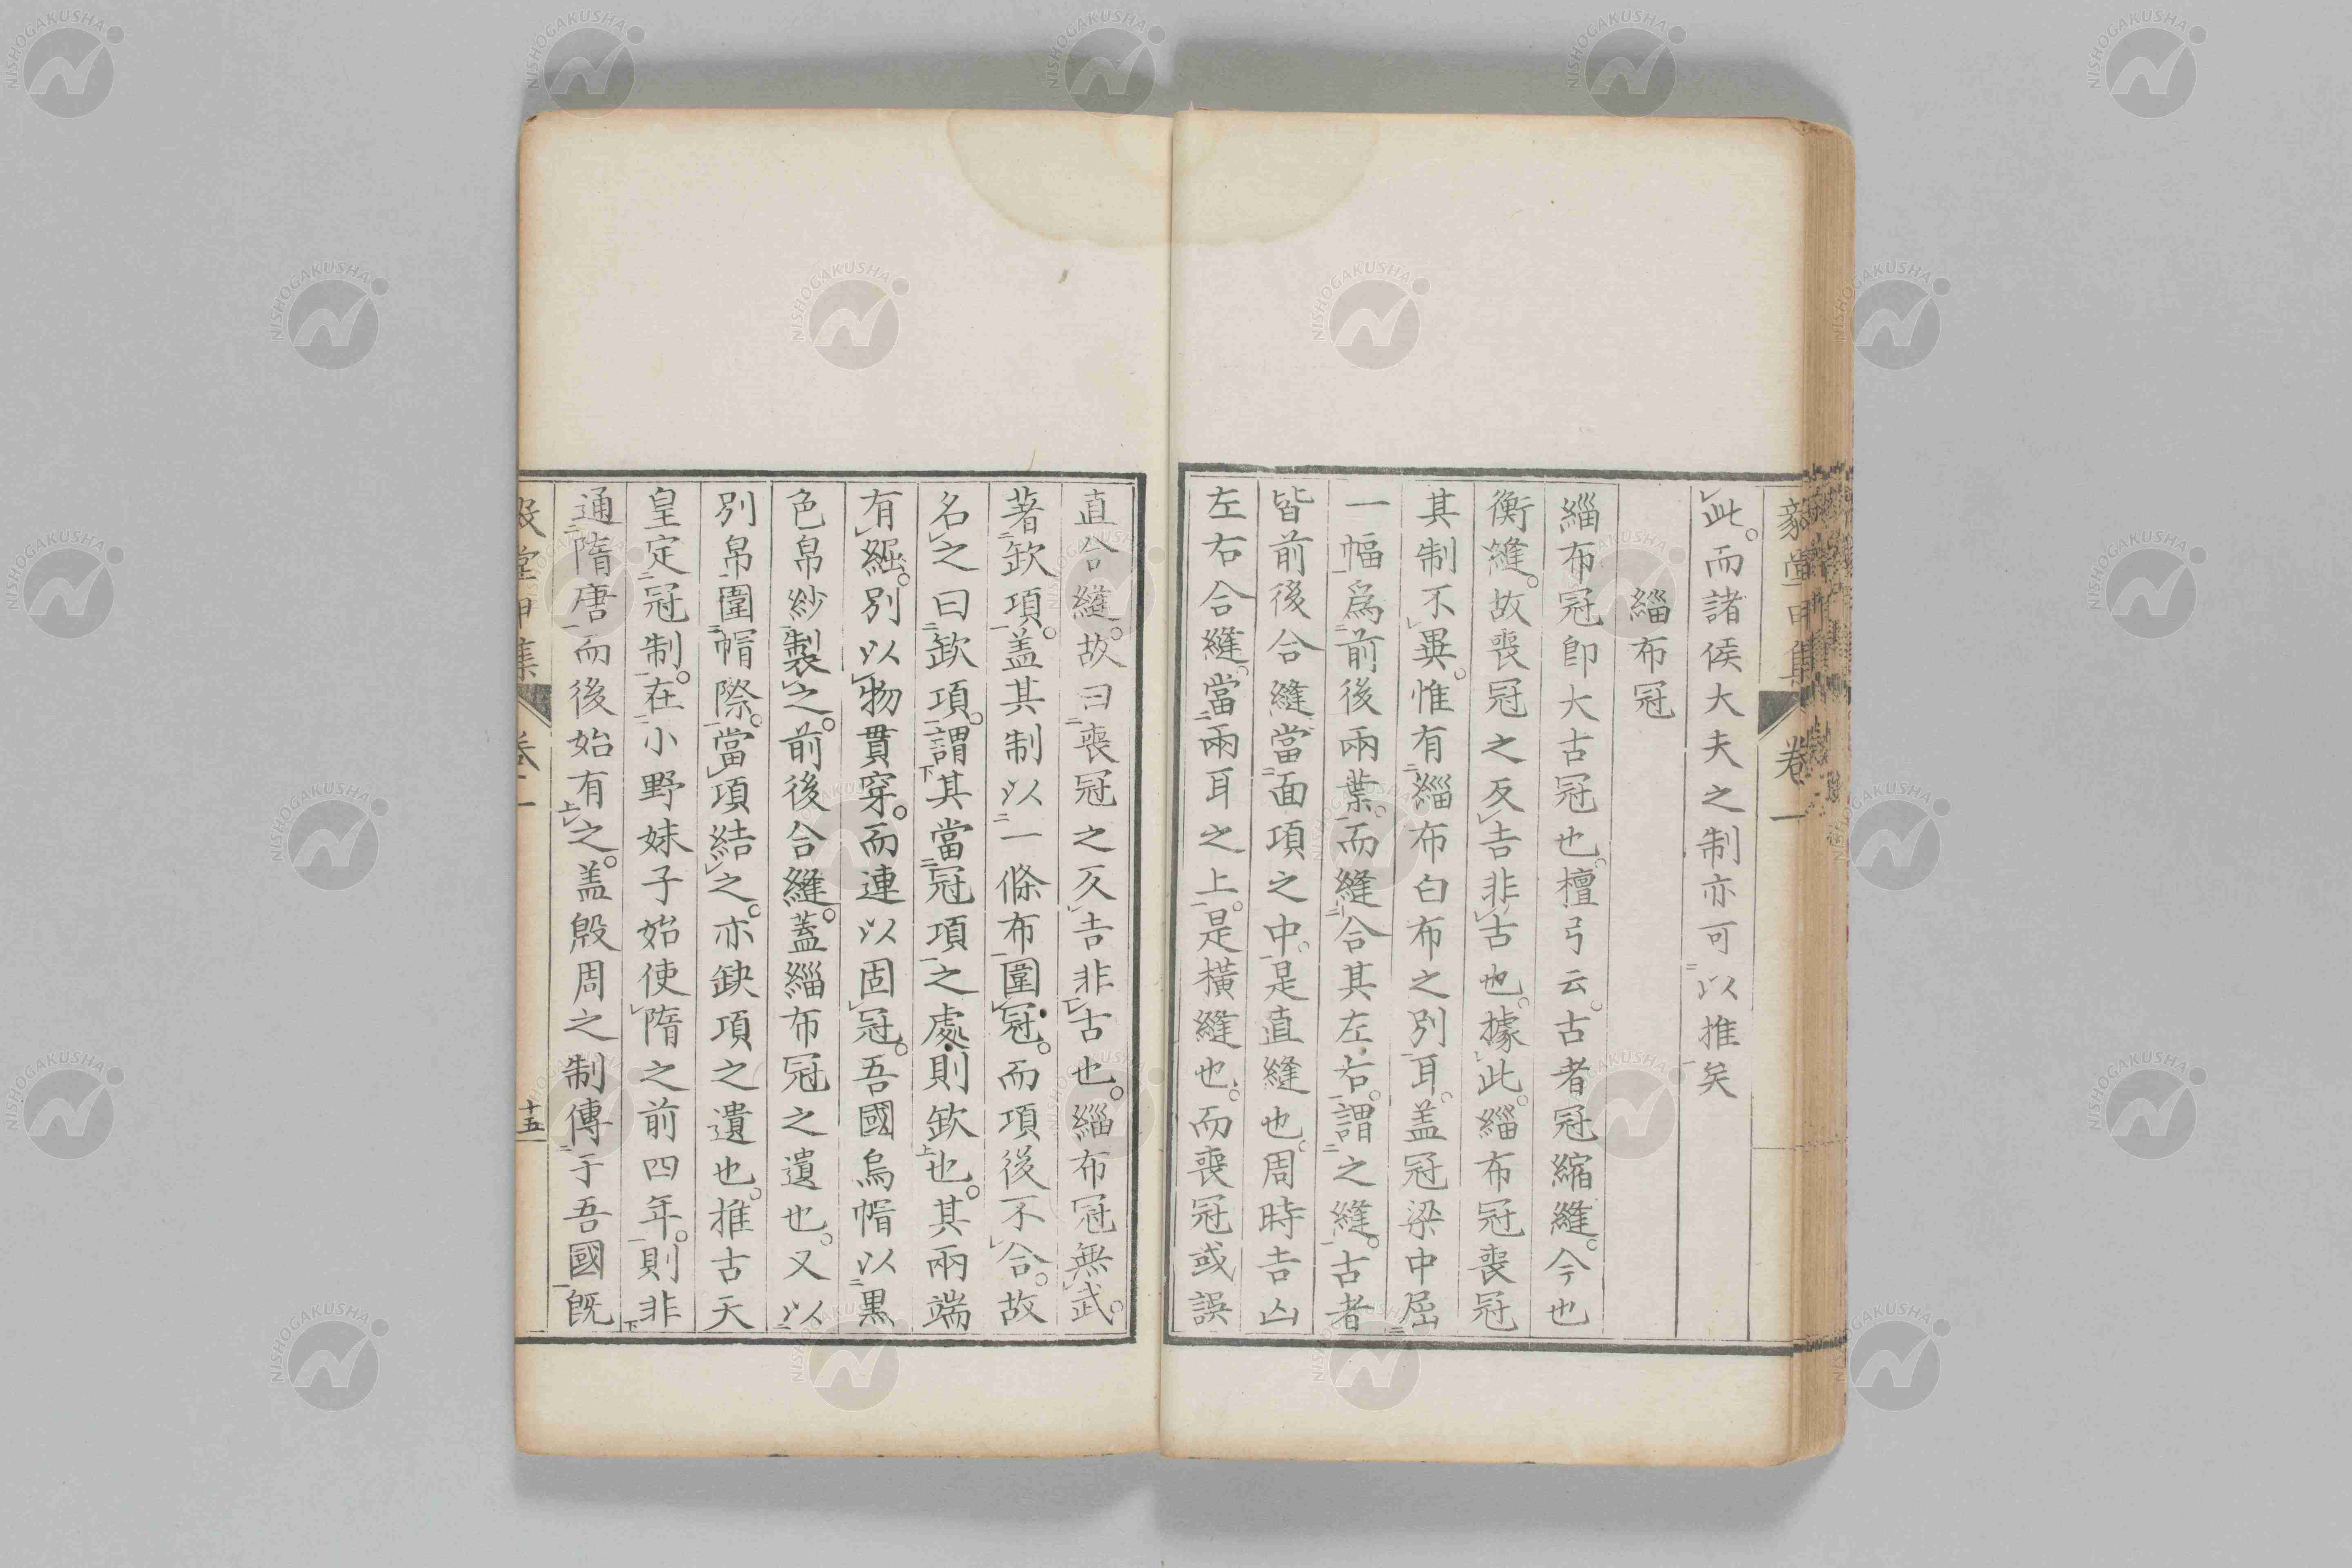 此。而諸侯大夫之制亦可以推矣
緇布冠
緇布冠卽大古冠也。檀弓云。古者冠縮縫。今也
衡縫。故喪冠之反吉非古也。據此。緇布冠喪冠
其制不異。惟有緇布白布之別耳。盖冠梁中屈
一幅爲前後兩葉。而縫合其左右。謂之縫。古者
皆前後合縫當面項之中。是直縫也。周時吉凶
左右合縫。當兩耳之上。是橫縫也。而喪冠或誤
直合縫。故曰喪冠之反吉非古也。緇布冠無武。
著缺項。盖其制以一條布圍冠。而項後不合。故
名之曰缺項。謂其當冠項之處則缺也。其兩端
有𦀌。別以物貫穿。而連以固冠。吾國烏帽以黑
色帛紗製之。前後合縫。蓋緇布冠之遺也。又以
別帛圍帽際。當項結之。亦缺項之遺也。推古天
皇定冠制。在小野妹子始使隋之前四年。則非
通隋唐而後始有之。盖殷周之制傳于吾國旣
毅堂甲集 卷一 十五
NISHOGAKUSHA